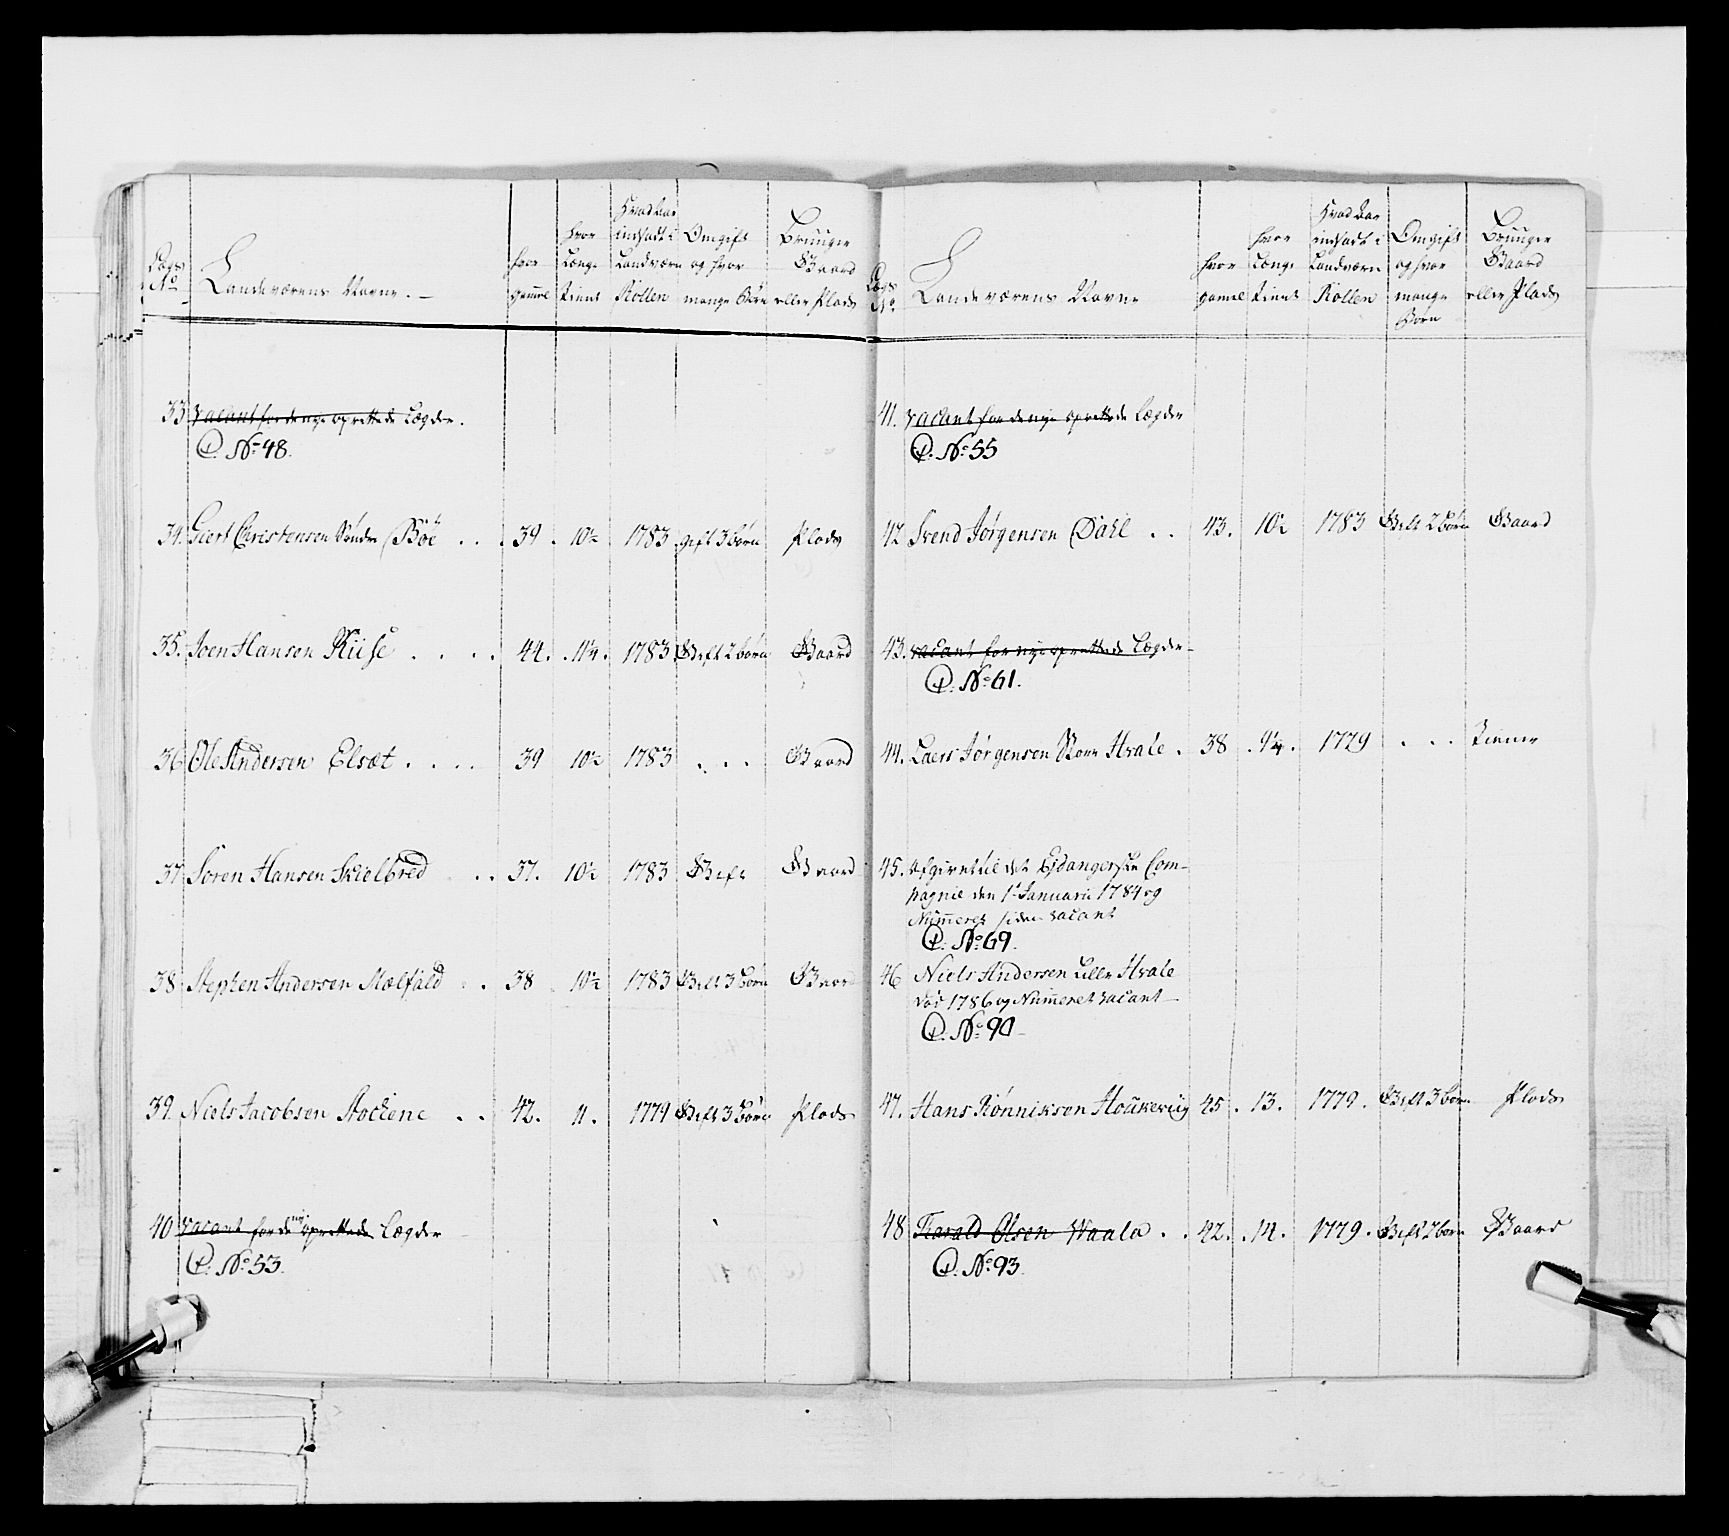 Lægs No
Landeværens Navne.
hvor gammel
hvor Længe tient
Hvad Aar indsadt i Landværn Rollen
Om gift og hvor mange Børn
Bruuger Gaard eller Plads
33 vacant for de nye oprettede Lægder.
No 48.
34. Giert Christensen Søndre Bøe . . . 39 . 10½ 1783 gift 3 børn Plads
35. Joen Hansen Riise . . . . 44. 11¼. 1783 Gift 2 børn Gaard
36 Ole Andersen Elsæt . . . . 39 10½ 1783 . . . Gaard
37 Søren Hansen Skielbred . . 37. 10½ 1783 Gift Gaard
38 Stephen Andersen Mælfald . . 38 10½ 1783 Gift 3 børn Gaard
39. Niels Jacobsen Stockene . . 42. 11. 1779 Gift 3 Børn Plads
40 vacant for de nye oprettede Lægder
No 53.
Lægs No
Landeværens Navne
hvor gammel
hvor Længe tient
Hvad Aar indsadt i Landværn Rollen
Om gift og hvor mange Børn
Bruuger Gaard eller Plads
41. vacant for de nye oprettede Lægder
No 55
42 Svend Jørgensen Dahl . . 43. 10½ 1783 Gift 2 børn Gaard
43. vacant for nye oprettede Lægder
No 61.
44. Laers Jørgensen Store Hvale . 38 . 9¼. 1779 . . . Tiener
45. Afgivet til det Eidangerske Com-
pagnie den 1te Januarii 1784 og
Nummeret siden vacant
No 69.
46 Niels Andersen Lille Hvale
død 1786 og Nummeret vacant
No 90
47. Hans Rønniksen Houkeriig 45 . 13. 1779. Gift 3 børn Plads
48 Harald Olsen Waala . . 42. . 14. 1779. Gift 2 børn Gaard
No 93.